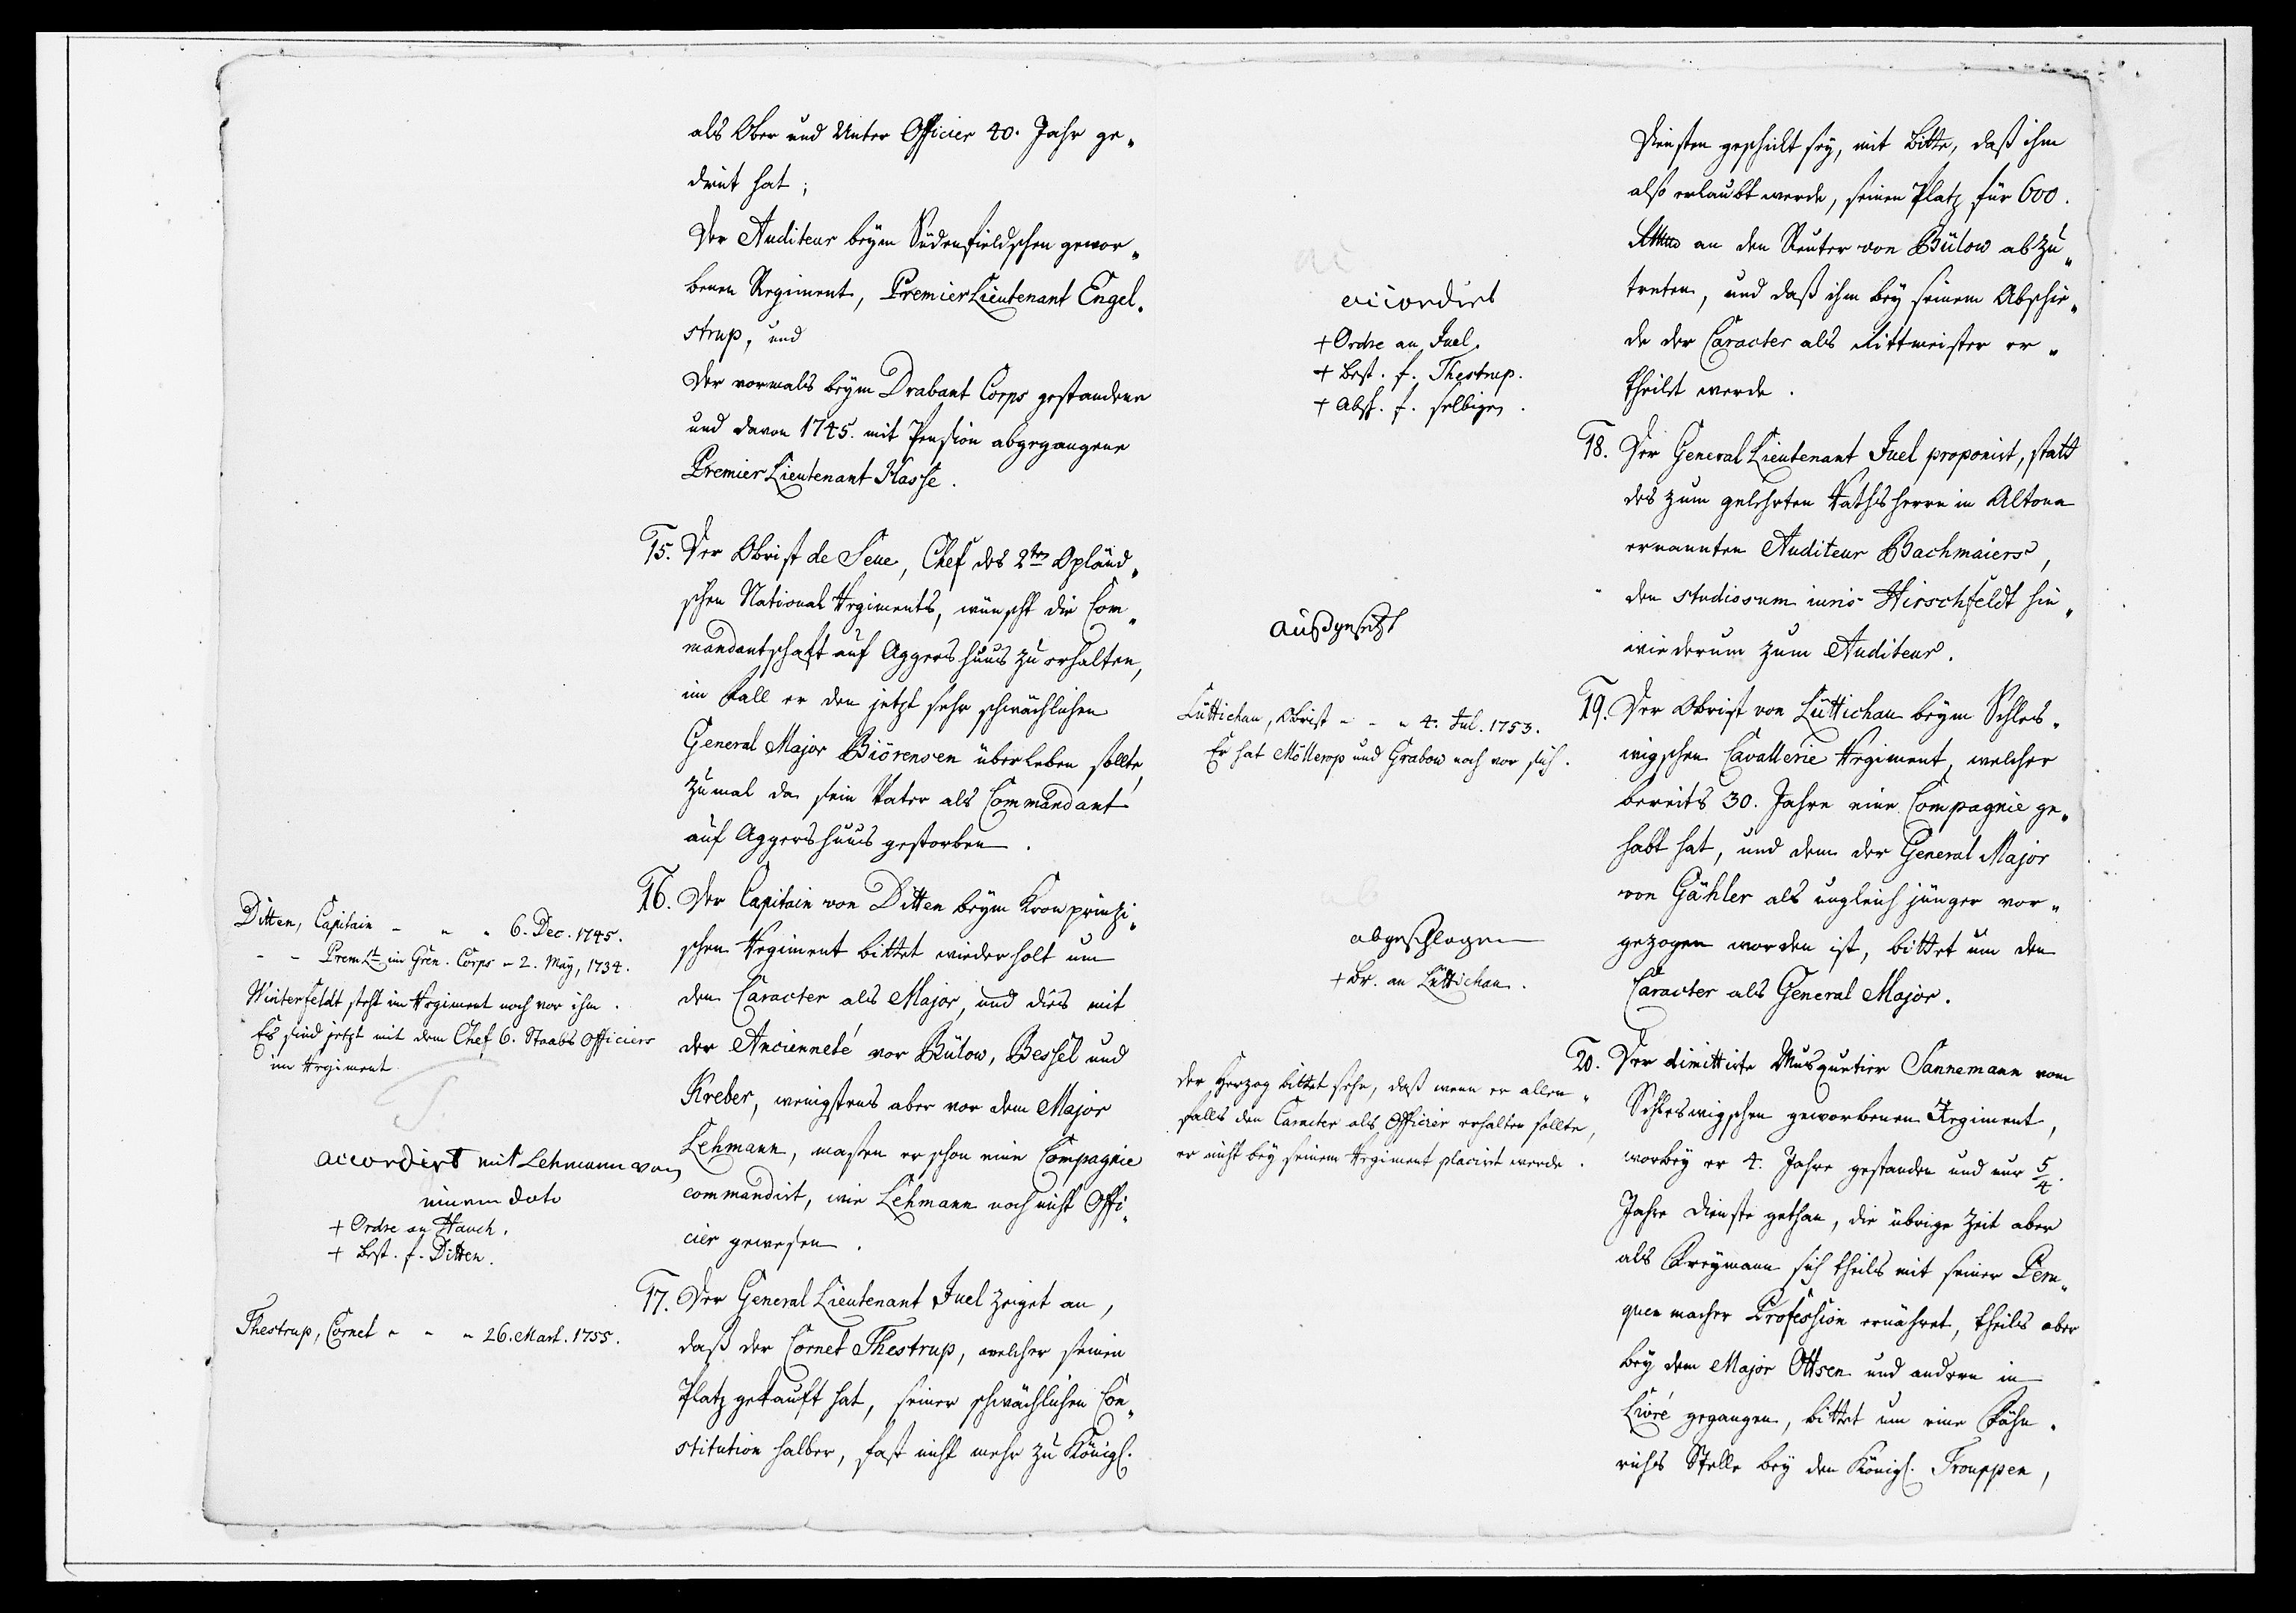 als Ober und Unter Officier 40. Jahr ge„
dient hat;
Der Auditeur beym Südenfieldschen gewor„
benen Regiment, Premier Lieutenant Engel„
strup, und
Der vormals beym Drabant Corps gestandene
und davon 1745. mit Pension abgegangene
Premier Lieutenant Klasse.
15. Der Obrist de Seue, Chef des 2ten Opländ„
schen National Regiments, wünscht die Com„
mandantschaft auf Aggershuus zu erhalten,
im Fall er den jetzt sehr schwächlichen
General Major Biörensen überleben sollte,
zumal da sein Vater als Commandant
auf Aggershuus gestorben.
Ditten, Capitain - „ „ 6. Dec. 1745.
- - Prem Lt im Gren. Corps - 2. May, 1734.
Winterfeldt steht im Regiment noch vor ihm.
Es sind jetzt mit dem Chef 6. Staabs Officiers
im Regiment
accordirt mit Lehmann von
einem dato
+ Ordre an Hauch.
+ Best. f. Ditten.
16. Der Capitain von Ditten beym Kronprinzi„
schen Regiment bittet wiederholt um
den Caracter als Major, und dies mit
der Ancienneté vor Bülow, Bessel und
Kreber, wenigstens aber vor dem Major
Lehmann, massen er schon eine Compagnie
commandirt, wie Lehmann noch nicht Offi„
cier gewesen.
Thestrup, Cornet „ - „ 26. Mart. 1755.
17. Der General Lieutenant Juel zeiget an,
daß der Cornet Thestrup, welcher seinen
Platz gekauft hat, seiner schwächlichen Con„
stitution halber, fast nicht mehr zu Königl.
Diensten geschickt sey, mit Bitte, daß ihm
also erlaubt werde, seinen Platz für 600.
an den Reuter von Bülow abzu„
treten, und daß ihm bey seinem Abschie„
de der Caracter als Rittmeister er„
theilet werde.
accordirt
+ Ordre an Juel.
+ Best. f. Thestrup.
+ Absch. f. selbigen.
18. Der General Lieutenant Juel proponirt, statt
des zum gelehrten Rathsherrn in Altona
ernannten Auditeur Bachmaiers,
den studiosum iuris Hirschfeldt hin„
wiederum zum Auditeur.
ausgesetzt
Lüttichau, Obrist - - „ 4. Jul. 1753.
Er hat Möllerup und Grabow noch vor sich.
19. Der Obrist von Lüttichau beym Schles„
wigschen Cavallerie Regiment, welcher
bereits 30. Jahre eine Compagnie ge„
habt hat, und dem der General Major
von Gähler als ungleich jünger vor„
gezogen worden ist, bittet um den
Caracter als General Major.
abgeschlagen
+ Br. an Lüttichau.
der Herzog bittet sehr, daß wenn er allen„
falls den Caracter als Officier erhalten sollte,
er nicht bey seinem Regiment placirt werde.
20. Der dimittirte Musquetier Sannemann vom
Schleswigschen geworbenen Regiment,
worbey er 4. Jahre gestanden und nur 5/4.
Jahre Dienste gethan, die übrige Zeit aber
als Freymann sich theils mit seiner Peru„
quenmacher Profession ernähret, theils aber
bey dem Major Ottsen und andern in
Livré gegangen, bittet um eine Fähn„
richs Stelle bey den Königl. Trouppen,